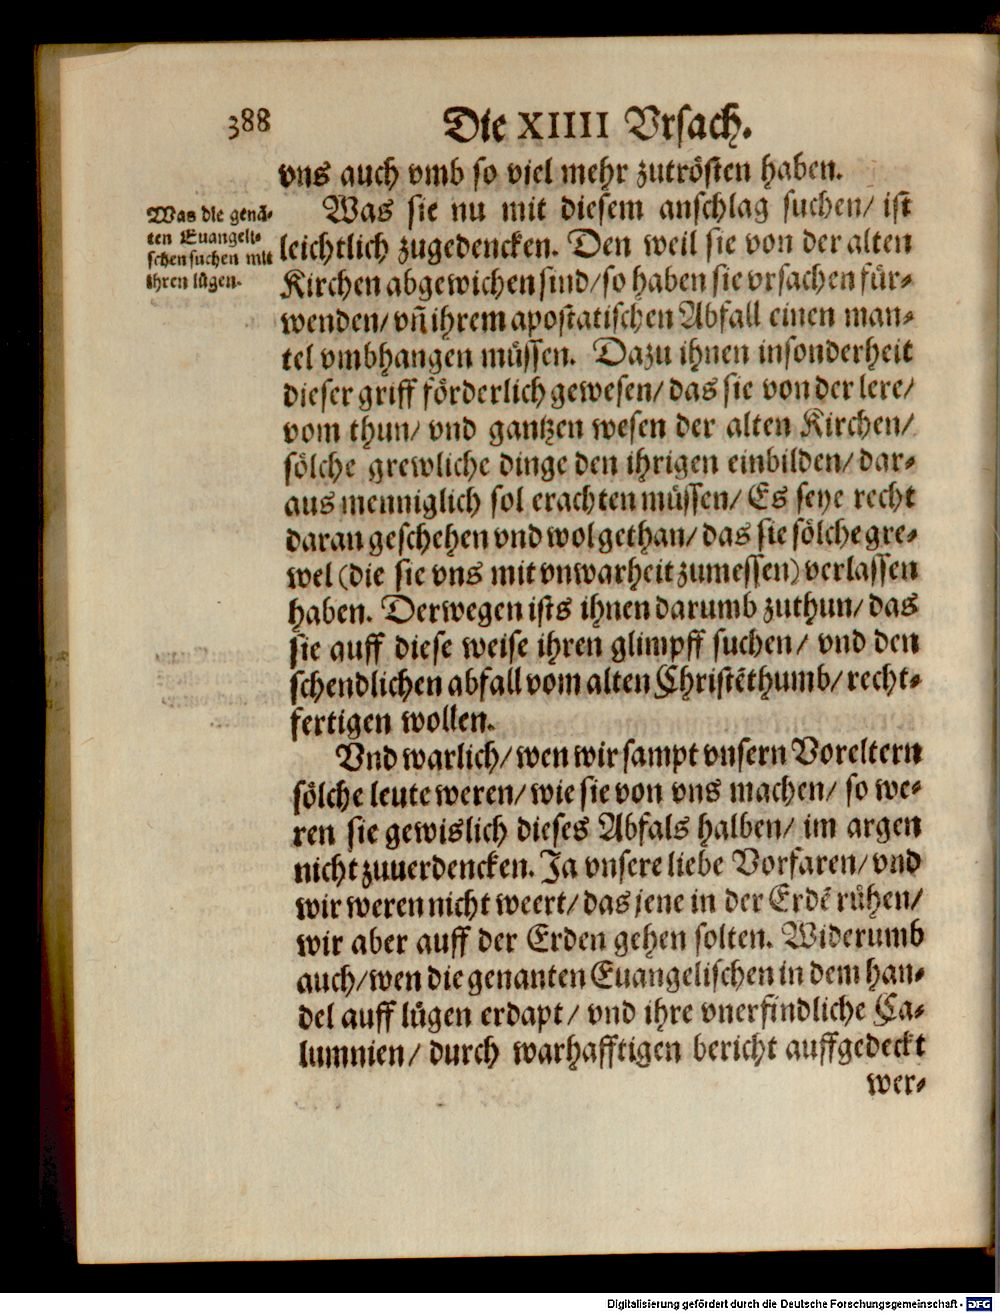 388
Die XIIII Vrsach.
vns auch vmb so viel mehr zutrösten haben.
Was die genā-
ten Euangeli-
schen suchen mit
ihren lügen.
Was sie nu mit diesem anschlag suchen/ ist
leichtlich zugedencken. Den weil sie von der alten
Kirchen abgewichen sind/ so haben sie vrsachen für-
wenden/ vn̄ ihrem apostatischen Abfall einen man-
tel vmbhangen müssen. Dazu ihnen insonderheit
dieser griff förderlich gewesen/ das sie von der lere/
vom thun/ vnd gantzen wesen der alten Kirchen/
sölche grewliche dinge den ihrigen einbilden/ dar-
aus menniglich sol erachten müssen/ Es seye recht
daran geschehen vnd wol gethan/ das sie sölche gre-
wel (die sie vns mit vnwarheit zumessen) verlassen
haben. Derwegen ists ihnen darumb zuthun/ das
sie auff diese weise ihren glimpff suchen/ vnd den
schendlichen abfall vom alten Christēthumb/ recht-
fertigen wollen.
Vnd warlich/ wen wir sampt vnsern Voreltern
sölche leute weren/ wie sie von vns machen/ so we-
ren sie gewislich dieses Abfals halben/ im argen
nicht zuuerdencken. Ja vnsere liebe Vorfaren/ vnd
wir weren nicht weert/ das jene in der Erdē rühen/
wir aber auff der Erden gehen solten. Widerumb
auch/ wen die genanten Euangelischen in dem han-
del auff lügen erdapt/ vnd ihre vnerfindliche Ca-
lumnien/ durch warhafftigen bericht auffgedeckt
wer-
Digitalisierung gefördert durch die Deutsche Forschungsgemeinschaft - DFG